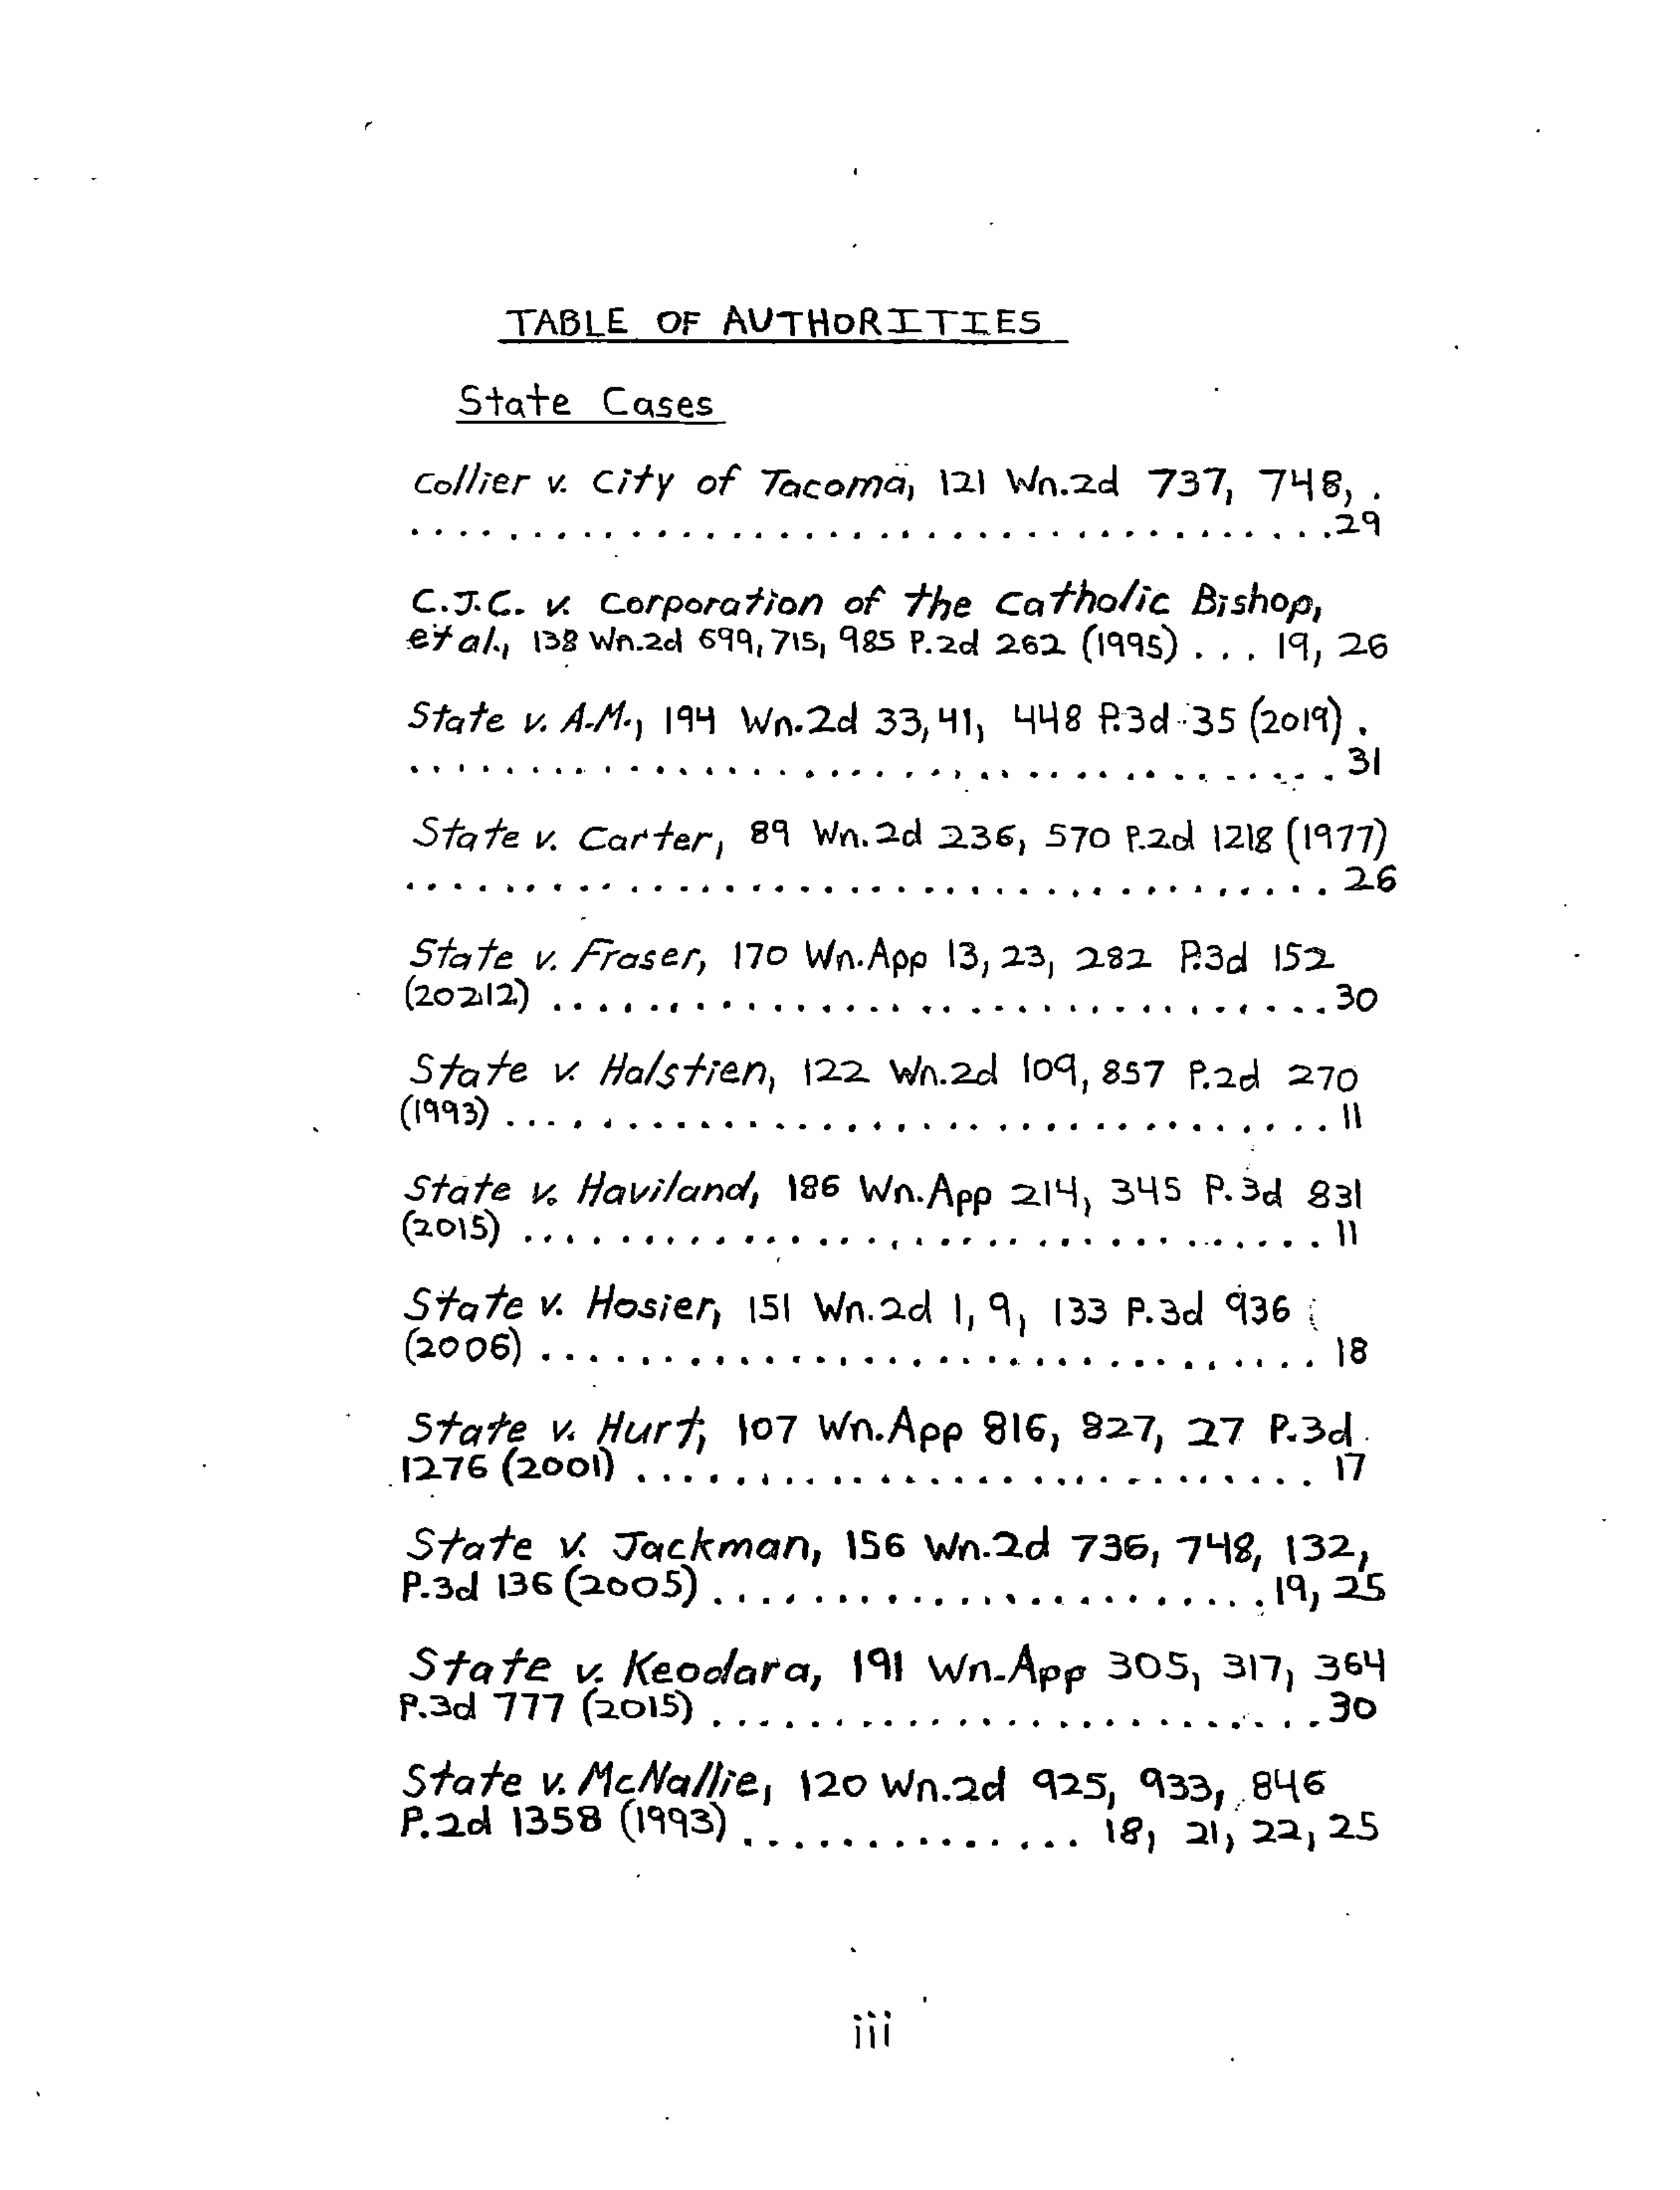 TABLE OF AUTHORITIES
State Cases
Collier v. City of Tacoma, 121 Wn.2d 737, 748, .
. . . . . . . . . . . . . . . . . . . . . . . . . . . . . . . . . . . . . .29
C.J.C. v. Corporation of the Catholic Bishop,
et al., 138 Wn.2d 699, 715, 985 P.2d 262 (1995) . . . 19, 26
State v. A.M., 194 Wn.2d 33, 41, 448 P.3d 35 (2019) .
. . . . . . . . . . . . . . . . . . . . . . . . . . . . . . . . . . . . . . 31
State v. Carter, 89 Wn.2d 236, 570 P.2d 1218 (1977)
. . . . . . . . . . . . . . . . . . . . . . . . . . . . . . . . . . . . . . 26
State v. Fraser, 170 Wn.App 13, 23, 282 P.3d 152
(20212) . . . . . . . . . . . . . . . . . . . . . . . . . . . . . . . .30
State v. Halstien, 122 Wn.2d 109, 857 P.2d 270
(1993) . . . . . . . . . . . . . . . . . . . . . . . . . . . . . . . . . . 11
State v. Haviland, 186 Wn.App 214, 345 P.3d 831
(2015) . . . . . . . . . . . . . . . . . . . . . . . . . . . . . . . . . 11
State v. Hosier, 151 Wn.2d 1, 9, 133 P.3d 936
(2006) . . . . . . . . . . . . . . . . . . . . . . . . . . . . . . . . 18
State v. Hurt, 107 Wn.App 816, 827, 27 P.3d
1276 (2001) . . . . . . . . . . . . . . . . . . . . . . . . . . . . 17
State v. Jackman, 156 Wn.2d 736, 748, 132,
P.3d 136 (2005) . . . . . . . . . . . . . . . . . . . . . . .19, 25
State v. Keodara, 191 Wn.App 305, 317, 364
P.3d 777 (2015) . . . . . . . . . . . . . . . . . . . . . . . . .30
State v. McNallie, 120 Wn.2d 925, 933, 846
P.2d 1358 (1993) . . . . . . . . . . . . . . 18, 21, 22, 25
iii